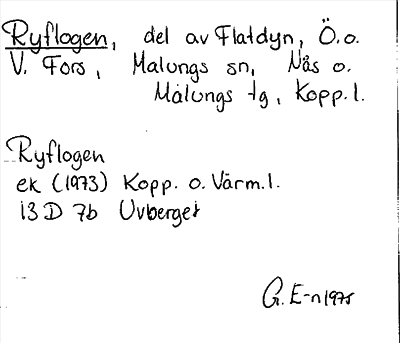 Ryflogen, del av Flatdyn, Ö.o.
V. Fors, Malungs sn, Nås o.
Malungs tg, Kopp.l.
Ryflogen
ek (1973) Kopp. o. Värm.l.
13 D 7b Uvberget
G. E-n 1975